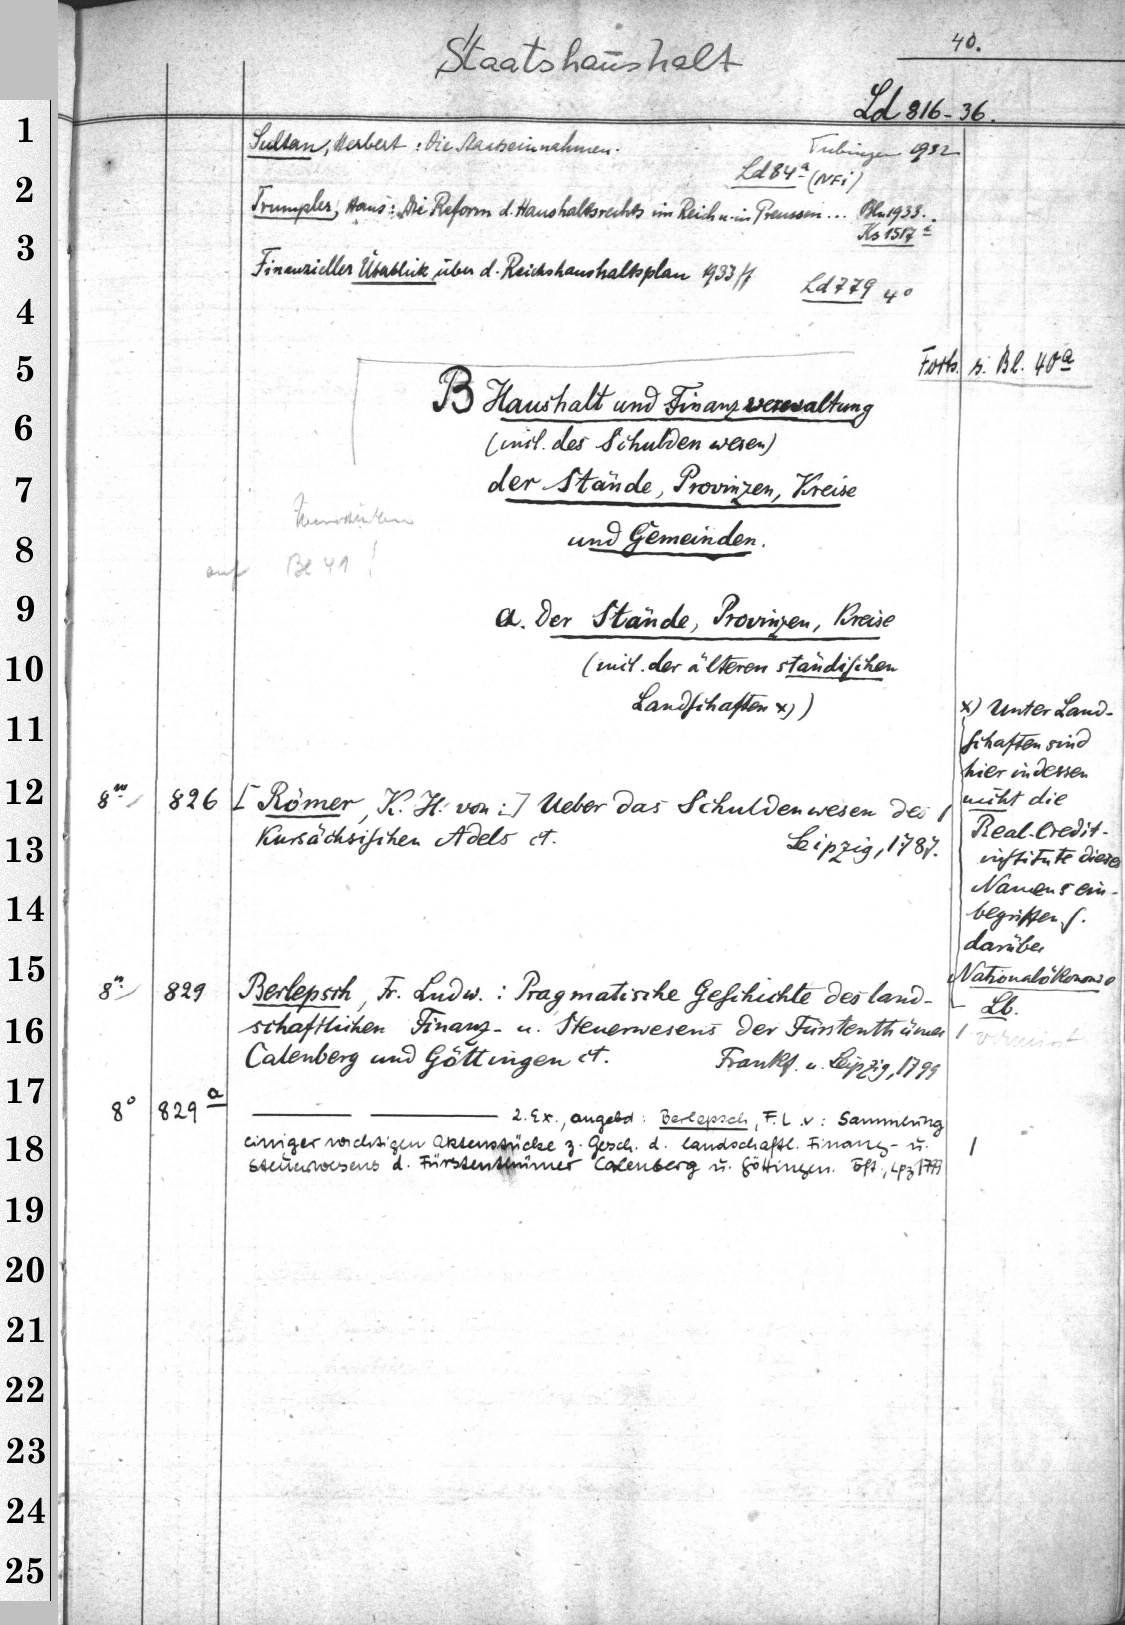 Staatshaushalt
40.
Ld 816-36.
1
Sultan, Herbert: Die Staatseinnahmen. Tübingen 1932
Ld 84ᵃ (NFi)
2
Trumpler, Hans: Die Reform d. Haushaltsrechts im Reich u. in Preussen... Bln 1933.
Ks 1517ᵃ
3
Finanzieller Überblick über d. Reichshaushaltsplan 1933 ff
Ld 779 4°
4
5
Forts. s. Bl. 40ᵃ
B Haushalt und Finanzverwaltung
6
(incl. des Schuldenwesen)
7
der Stände, Provinzen, Kreise
8
und Gemeinden.
auf Bl 41!
9
a. Der Stände, Provinzen, Kreise
10
(incl. der älteren ständischen
Landschaften x))
11
x) Unter Land-
schaften sind
hier indessen
nicht die
Real-Credit-
institute dieses
Namens ein-
begriffen s.
darüber
Nationalökonomie
Lb.
12
8° 826 [Römer, K. H. von:] Ueber das Schuldenwesen des
13
Kursächsischen Adels ct. Leipzig, 1787.
14
15
8° 829 Berlepsch, Fr. Ludw.: Pragmatische Geschichte des land-
16
schaftlichen Finanz- u. Steuerwesens der Fürstenthümer
Calenberg und Göttingen ct. Frankf. u. Leipzig, 1799
17
8° 829ᵃ 2. Ex., angebd: Berlepsch, F. L. v: Sammlung
18
einiger wichtigen Aktenstücke z. Gesch. d. landschaftl. Finanz- u.
Steuerwesens d. Fürstenthümer Calenberg u. Göttingen. Fft, Lpz
19
20
21
22
23
24
25